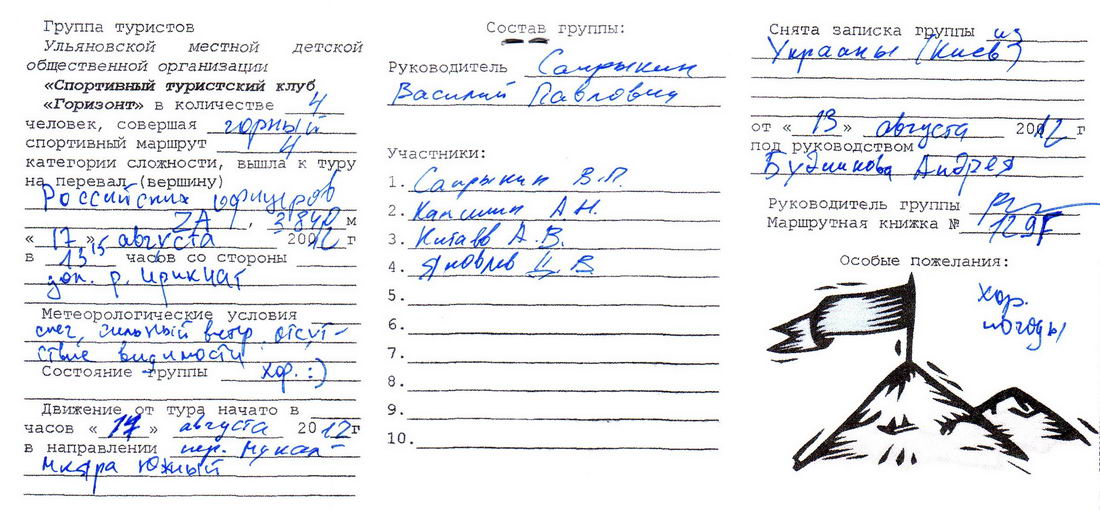 Группа туристов
Ульяновской местной детской
общественной организации
«Спортивный туристский клуб
«Горизонт» в количестве 4
человек, совершая горный
спортивный маршрут 4
категории сложности, вышла к туру
на перевал (вершину)
Российских офицеров
2А, 3840 м
« 17 » августа 2012 г
в 13 15 часов со стороны
дол. р. Ирикчат
Метеорологические условия
снег, сильный ветер, отсут-
ствие видимости
Состояние группы хор. :)
Движение от тура начато в
часов « 17 » августа 2012г
в направлении пер.
Южный
Состав группы:
Руководитель Сапрыкин
Василий Павлович
Участники:
1. Сапрыкин В.П.
2. Капишин А.Н.
3. Китаев А.В.
4. Яковлев В
5.
6.
7.
8.
9.
10.
Снята записка группы из
Украины (Киев)
от « 13 » августа 2012 г
под руководством
Будникова Андрея
Руководитель группы
Маршрутная книжка №
Особые пожелания:
хор.
погоды